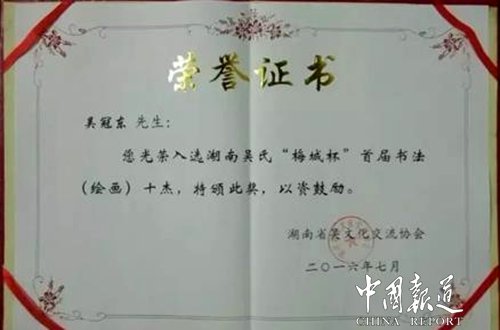 荣誉证书
吴冠东 先生：
您光荣入选湖南吴氏“梅城杯”首届书法
（绘画）十杰，特颁此奖，以资鼓励。
湖南省吴文化交流协会
二〇一六年七月
中国报道
CHINA REPORT